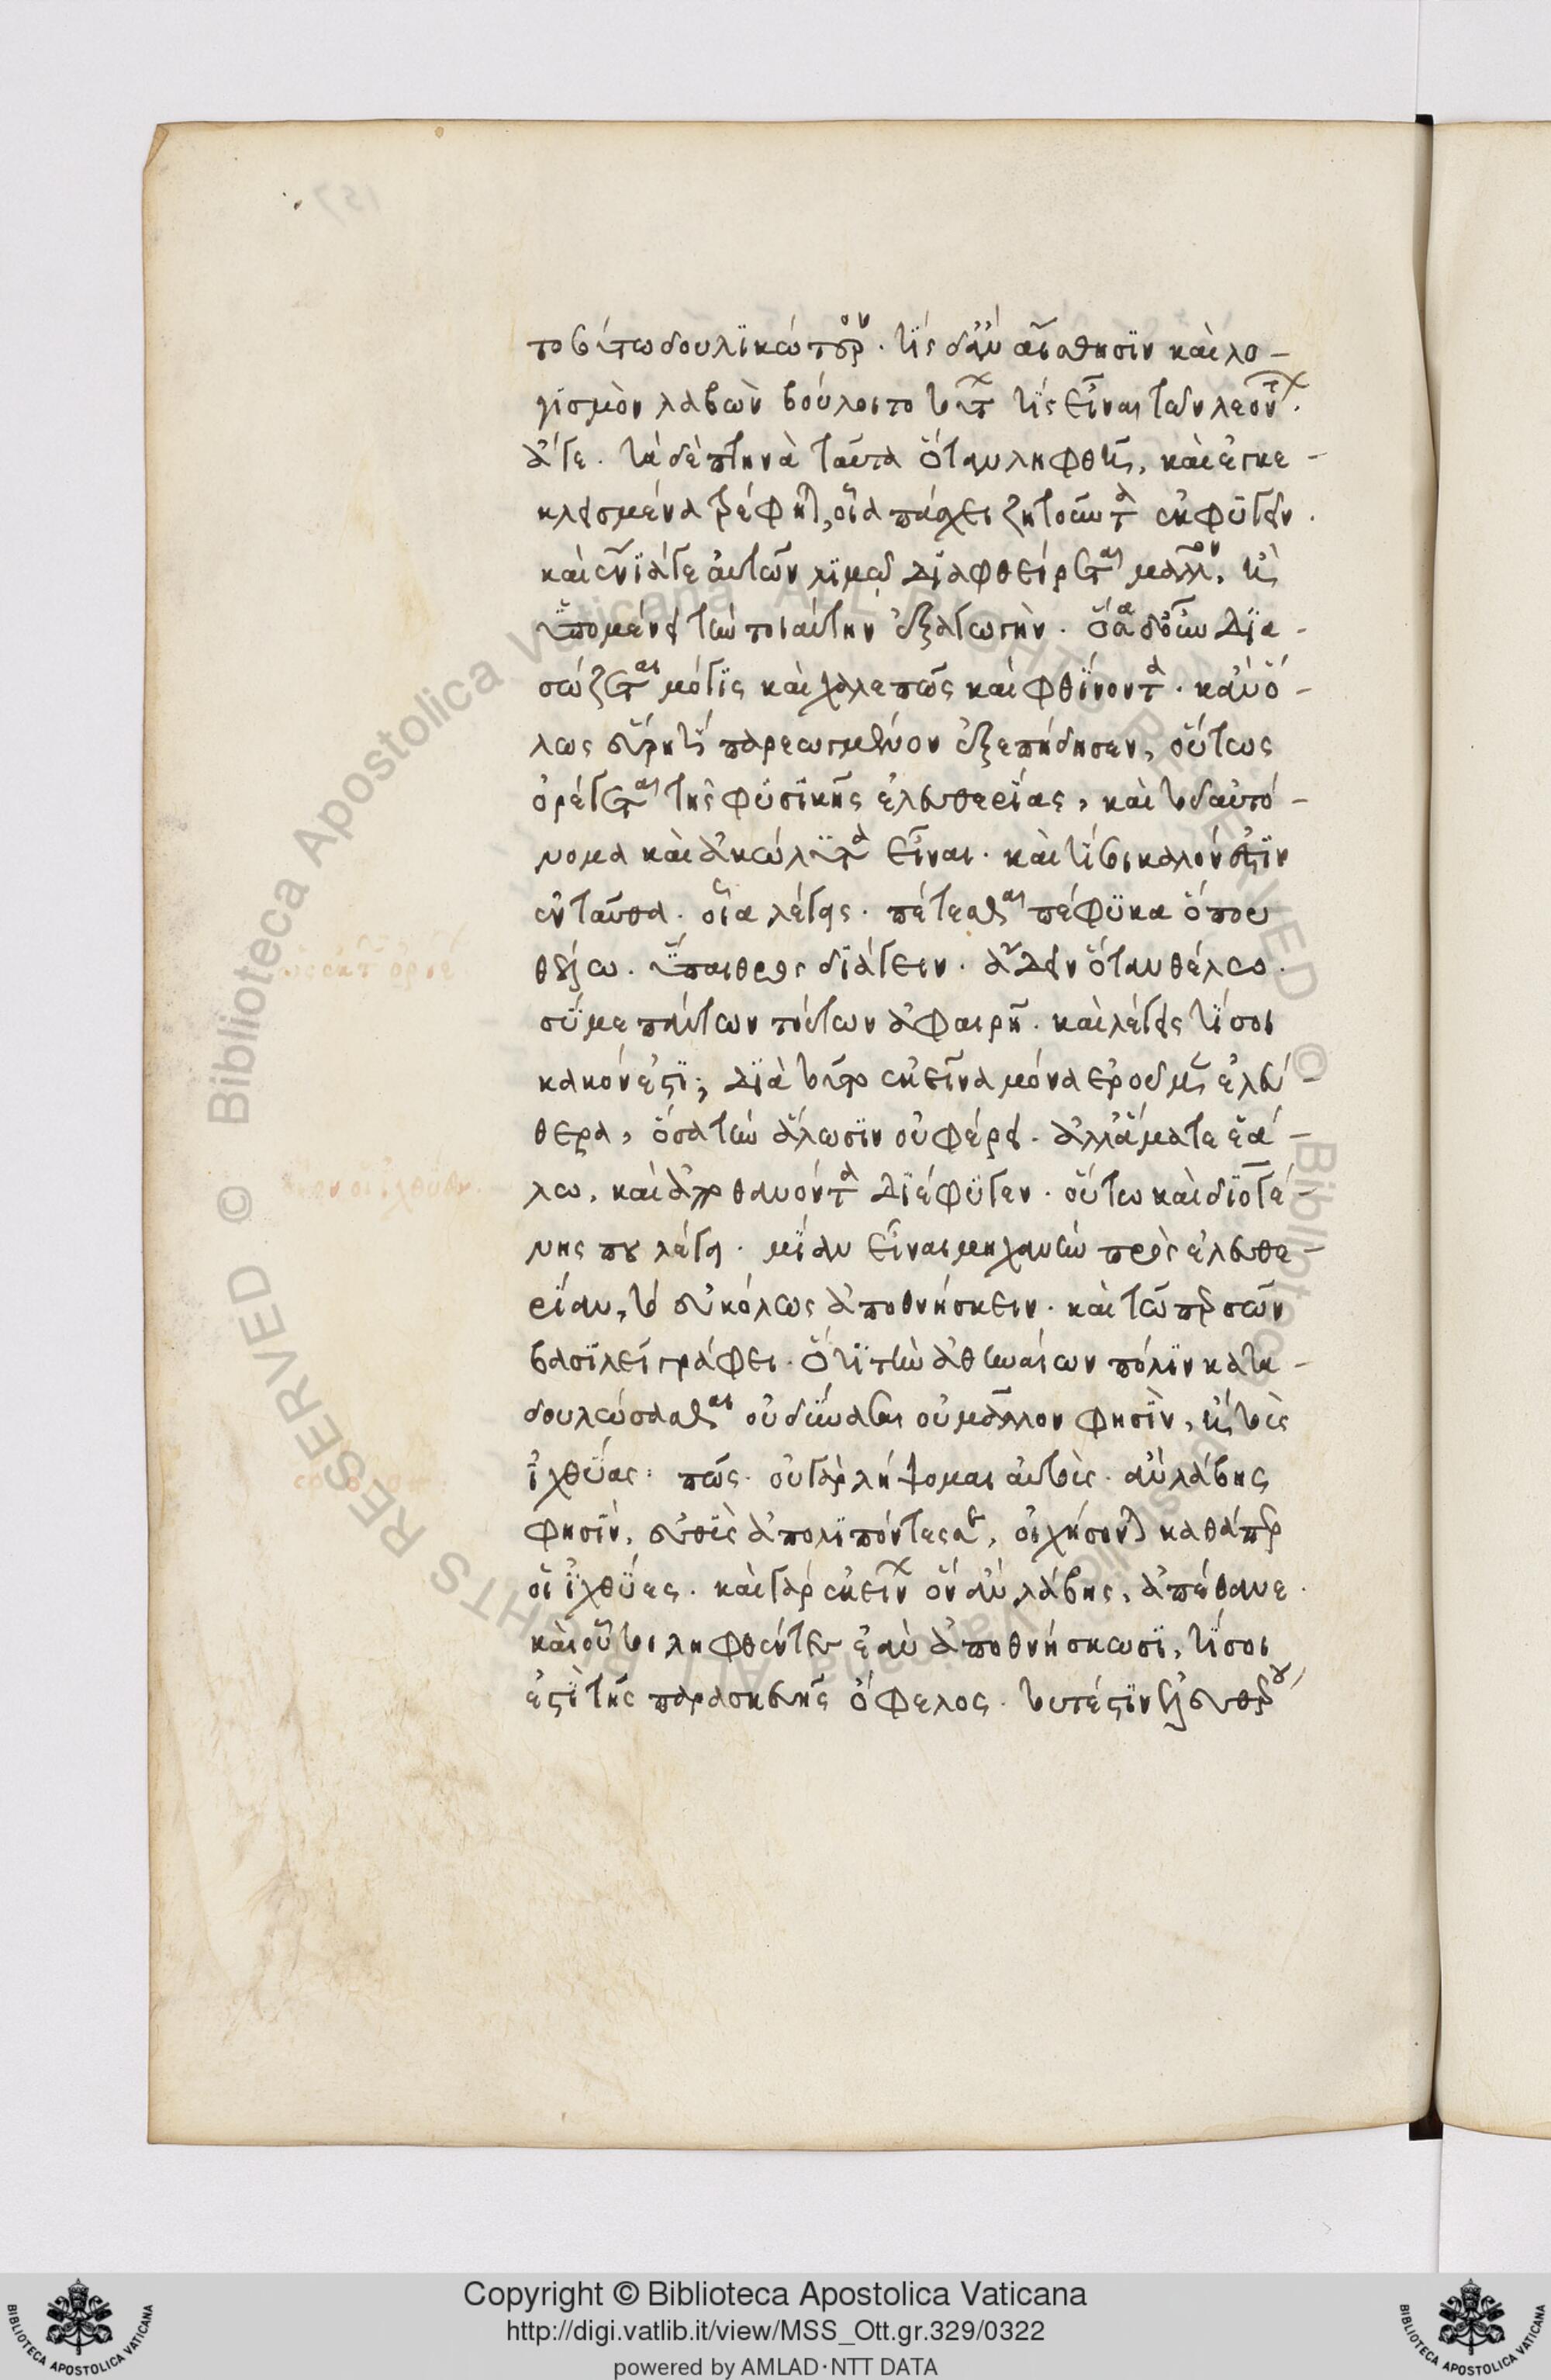 τοσούτω δουλικώτερον. τίς δ' ἂν αἴσθησιν καὶ λο-
γισμὸν λαβὼν βούλοιτο τούτων τίς εἶναι τῶν λεόντων.
ἄγε. τὰ δὲ πτηνὰ ταῦτα ὅταν ληφθῇ, καὶ ἐγκε-
κλεισμένα τρέφηται, οἷα πάσχει ζητοῦντα ἐκφυγεῖν.
καὶ ἔνιά γε αὐτῶν λιμῷ διαφθείρεται μᾶλλον, ἢ
ὑπομένει τὴν τοιαύτην διεξαγωγήν. ὅσα δ' οὖν δια-
σώζεται μόγις καὶ χαλεπῶς καὶ φθίνοντα. κἂν ὅ-
λως εὕρῃ τι παρεῳγμένον ἐξεπήδησεν, οὕτως
ὀρέγεται τῆς φυσικῆς ἐλευθερίας, καὶ τοῦ αὐτό-
νομα καὶ ἀκώλυτα εἶναι. καὶ τί σοι κακόν ἐστιν
ἐνταῦθα. οἷα λέγεις. πέτεσθαι πέφυκα ὅπου
θέλω. ὕπαιθρος διάγειν. ᾄδειν ὅταν θέλω.
σύ με πάντων τούτων ἀφαιρῇ. καὶ λέγεις τί σοι
κακόν ἐστι; διὰ τοῦτο ἐκεῖνα μόνα ἐροῦμεν ἐλεύ-
θερα, ὅσα τὴν ἅλωσιν οὐ φέρει. ἀλλ' ἅμα τε ἑά-
λω, καὶ ἀποθανόντα διέφυγεν. οὕτω καὶ διογέ-
νης που λέγει. μίαν εἶναι μηχανὴν πρὸς ἐλευθε-
ρίαν, τὸ εὐκόλως ἀποθνήσκειν. καὶ τῷ περσῶν
βασιλεῖ γράφει. ὅτι τὴν ἀθηναίων πόλιν κατα-
δουλώσασθαι οὐ δύνασαι οὐ μᾶλλον φησὶν, ἢ τοὺς
ἰχθύας. πῶς. οὐ γὰρ λήψομαι αὐτούς. ἂν λάβῃς
φησίν, εὐθὺς ἀπολιπόντες σε, οἰχήσονται καθάπερ
οἱ ἰχθύες. καὶ γὰρ ἐκείνων ὃν ἂν λάβῃς, ἀπέθανε.
καὶ οὗτοι ληφθέντες ἐὰν ἀποθνήσκωσι, τί σοι
ἐστὶ τῆς παρασκευῆς ὄφελος. τοῦτ' ἔστιν ἐλευθέρου